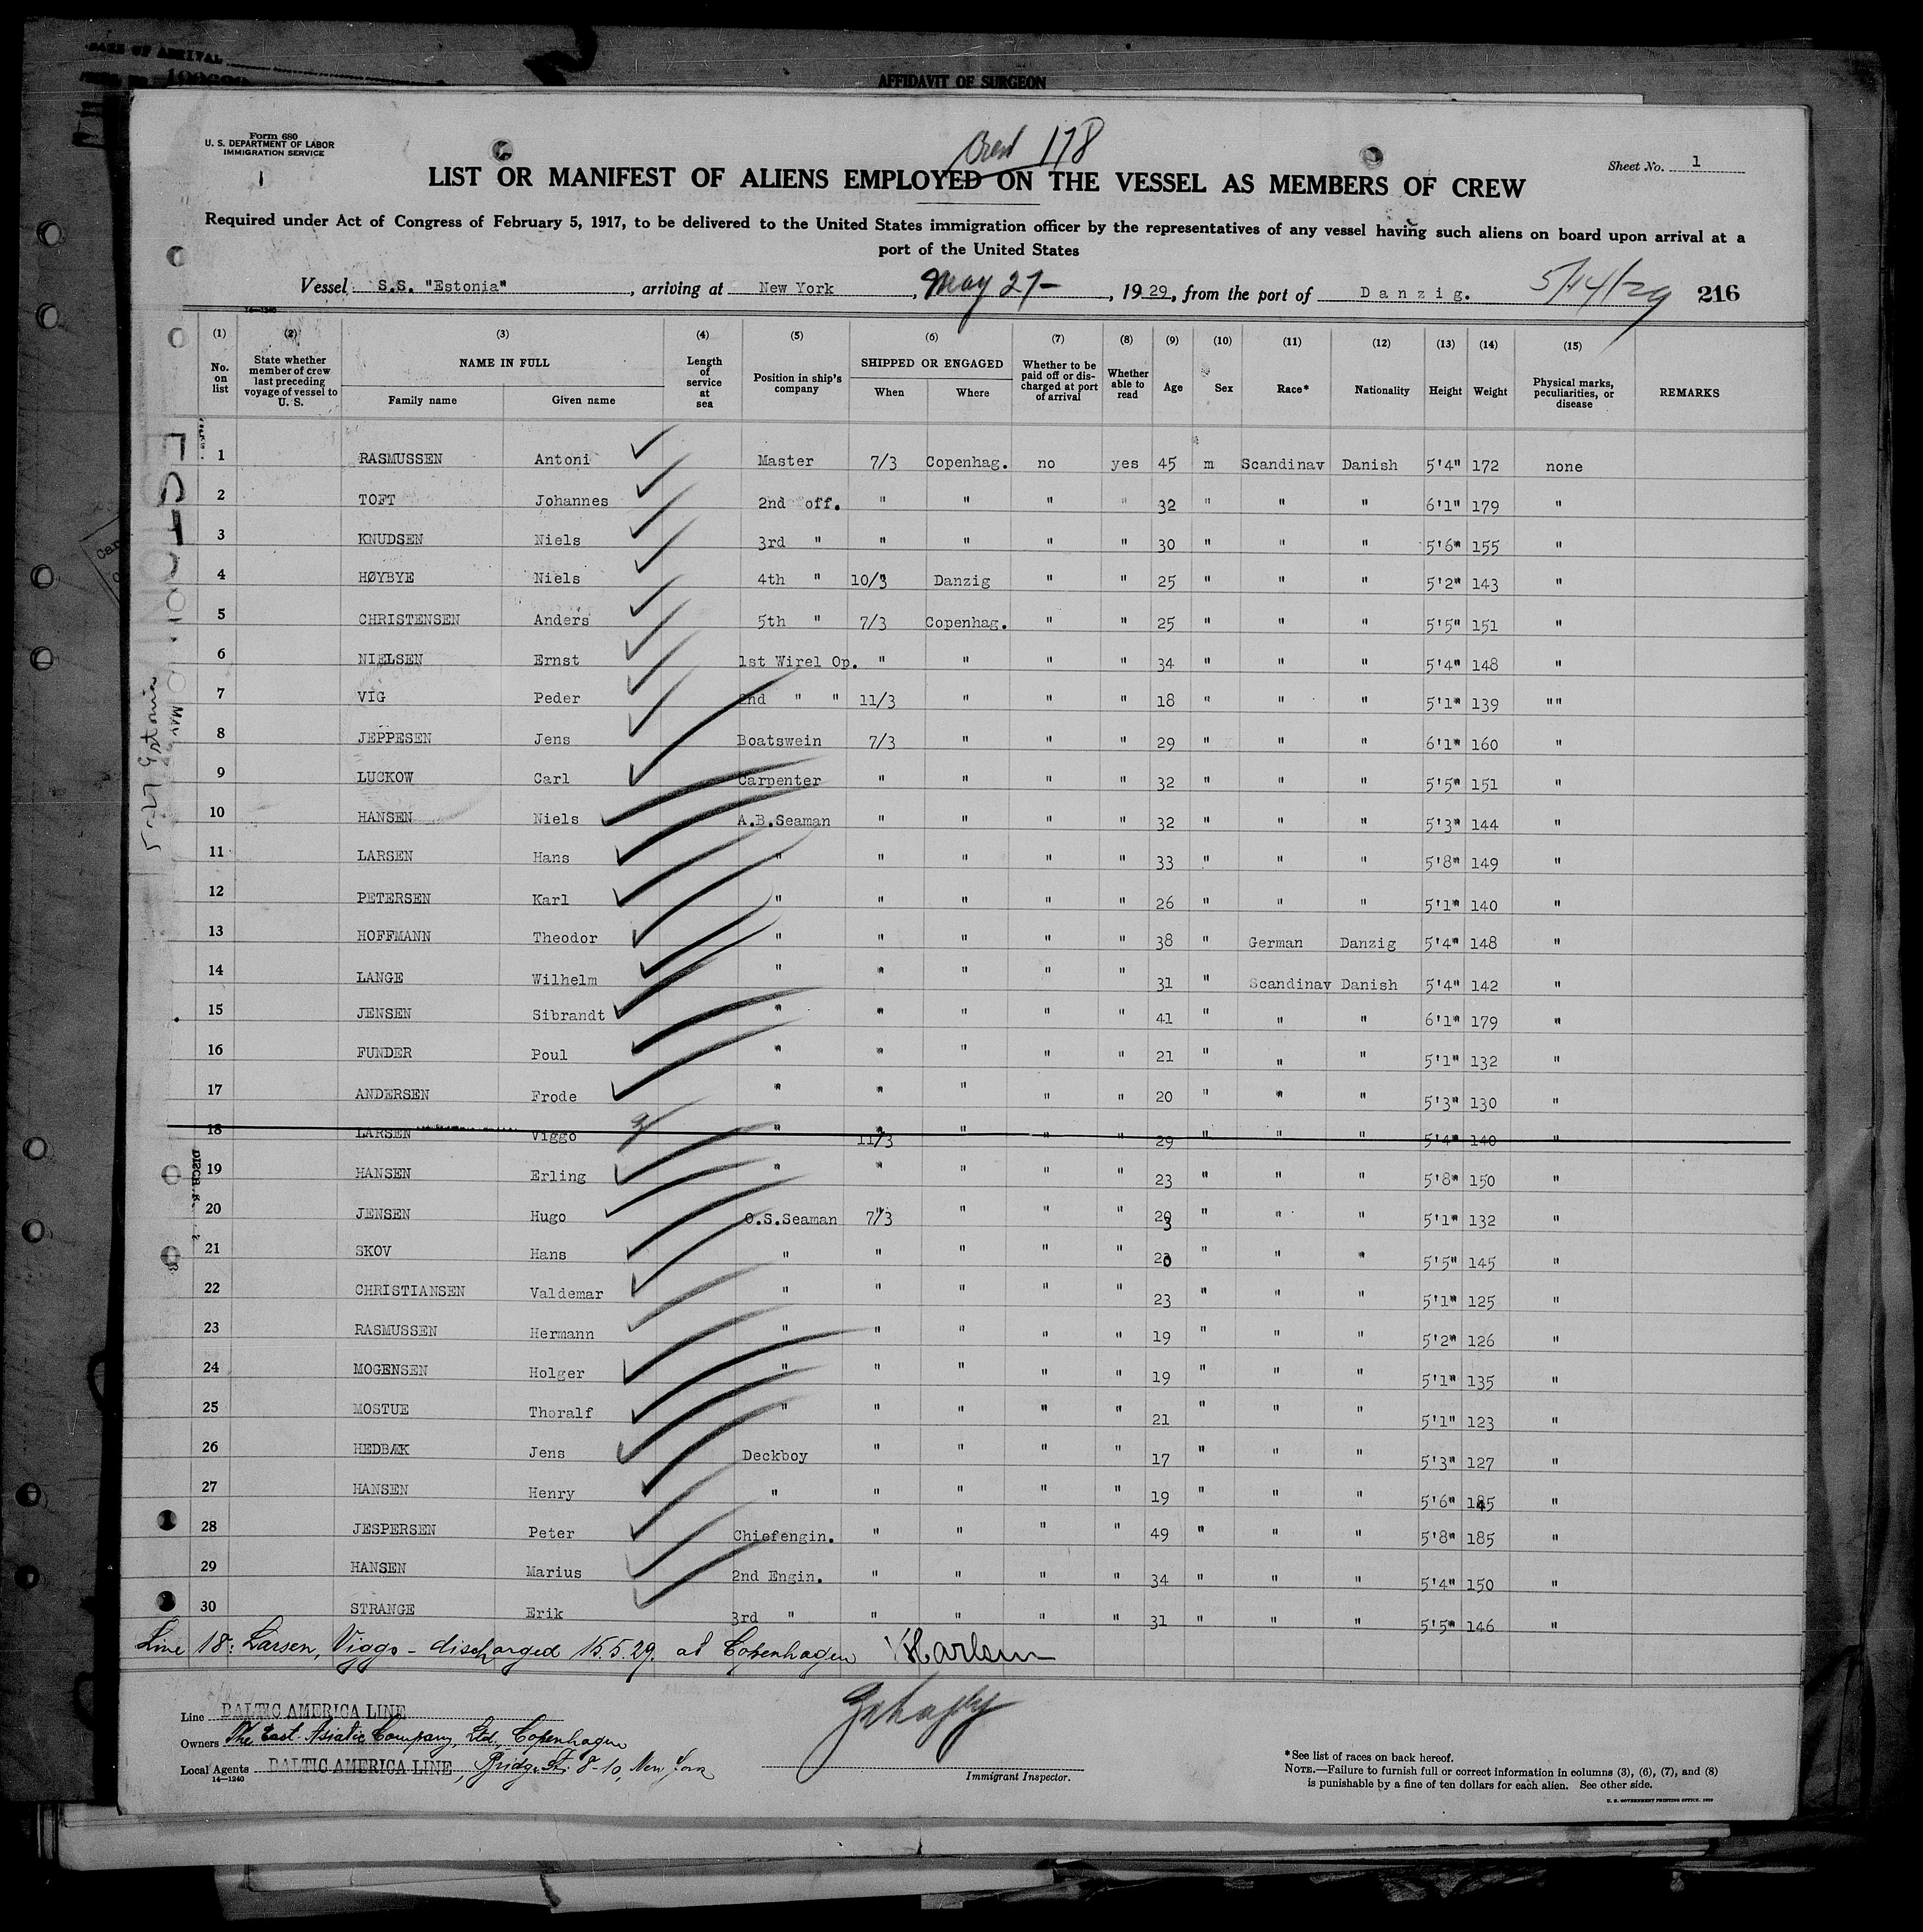 DATE OF ARRIVAL
AFFIDAVIT OF SURGEON
Form 680
U. S. DEPARTMENT OF LABOR
IMMIGRATION SERVICE
178
Sheet No. 1
LIST OR MANIFEST OF ALIENS EMPLOYED ON THE VESSEL AS MEMBERS OF CREW
Required under Act of Congress of February 5, 1917, to be delivered to the United States immigration officer by the representatives of any vessel having such aliens on board upon arrival at a
port of the United States
Vessel S.S. "Estonia", arriving at New York, May 27-, 1929, from the port of Danzig. 5/14/29 216
14-1240
(1) (2) (3) (4) (5) (6) (7) (8) (9) (10) (11) (12) (13) (14) (15)
No. on list State whether member of crew last preceding voyage of vessel to U. S. NAME IN FULL Family name Given name Length of service at sea Position in ship's company SHIPPED OR ENGAGED When Where Whether to be paid off or discharged at port of arrival Whether able to read Age Sex Race* Nationality Height Weight Physical marks, peculiarities, or disease REMARKS
1 RASMUSSEN Antoni Master 7/3 Copenhag. no yes 45 m Scandinav Danish 5'4" 172 none
2 TOFT Johannes 2nd off. " " " " 32 " " " 6'1" 179 "
3 KNUDSEN Niels 3rd " " " " " 30 " " " 5'6" 155 "
4 HØYBYE Niels 4th " 10/3 Danzig " " 25 " " " 5'2" 143 "
5 CHRISTENSEN Anders 5th " 7/3 Copenhag. " " 25 " " " 5'5" 151 "
6 NIELSEN Ernst 1st Wirel Op. " " " " 34 " " " 5'4" 148 "
7 VIG Peder 2nd " " 11/3 " " " 18 " " " 5'1" 139 ""
8 JEPPESEN Jens Boatswein 7/3 " " " 29 " " " 6'1" 160 "
9 LUCKOW Carl Carpenter " " " " 32 " " " 5'5" 151 "
10 HANSEN Niels A.B.Seaman " " " " 32 " " " 5'3" 144 "
11 LARSEN Hans " " " " " 33 " " " 5'8" 149 "
12 PETERSEN Karl " " " " " 26 " " " 5'1" 140 "
13 HOFFMANN Theodor " " " " " 38 " German Danzig 5'4" 148 "
14 LANGE Wilhelm " " " " " 31 " Scandinav Danish 5'4" 142 "
15 JENSEN Sibrandt " " " " " 41 " " " 6'1" 179 "
16 FUNDER Poul " " " " " 21 " " " 5'1" 132 "
17 ANDERSEN Frode " " " " " 20 " " " 5'3" 130 "
18 LARSEN Viggo " 11/3 " " " 29 " " " 5'4" 140 "
19 HANSEN Erling " " " " " 23 " " " 5'8" 150 "
20 JENSEN Hugo O.S.Seaman 7/3 " " " 23 " " " 5'1" 132 "
21 SKOV Hans " " " " " 20 " " " 5'5" 145 "
22 CHRISTIANSEN Valdemar " " " " " 23 " " " 5'1" 125 "
23 RASMUSSEN Hermann " " " " " 19 " " " 5'2" 126 "
24 MOGENSEN Holger " " " " " 19 " " " 5'1" 135 "
25 MOSTUE Thoralf " " " " " 21 " " " 5'1" 123 "
26 HEDBÆK Jens Deckboy " " " " 17 " " " 5'3" 127 "
27 HANSEN Henry " " " " " 19 " " " 5'6" 145 "
28 JESPERSEN Peter Chiefengin. " " " " 49 " " " 5'8" 185 "
29 HANSEN Marius 2nd Engin. " " " " 34 " " " 5'4" 150 "
30 STRANGE Erik 3rd " " " " " 31 " " " 5'5" 146 "
Line 18: Larsen, Viggo - discharged 15.5.29. at Copenhagen
Line BALTIC AMERICA LINE
Owners The East Asiatic Company, Ltd., Copenhagen
Local Agents BALTIC AMERICA LINE, Bridge St. 8-10, New York
14-1240
Immigrant Inspector.
*See list of races on back hereof.
NOTE.—Failure to furnish full or correct information in columns (3), (6), (7), and (8)
is punishable by a fine of ten dollars for each alien. See other side.
U. S. GOVERNMENT PRINTING OFFICE. 1929
ESTONIA
5-27 Estonia